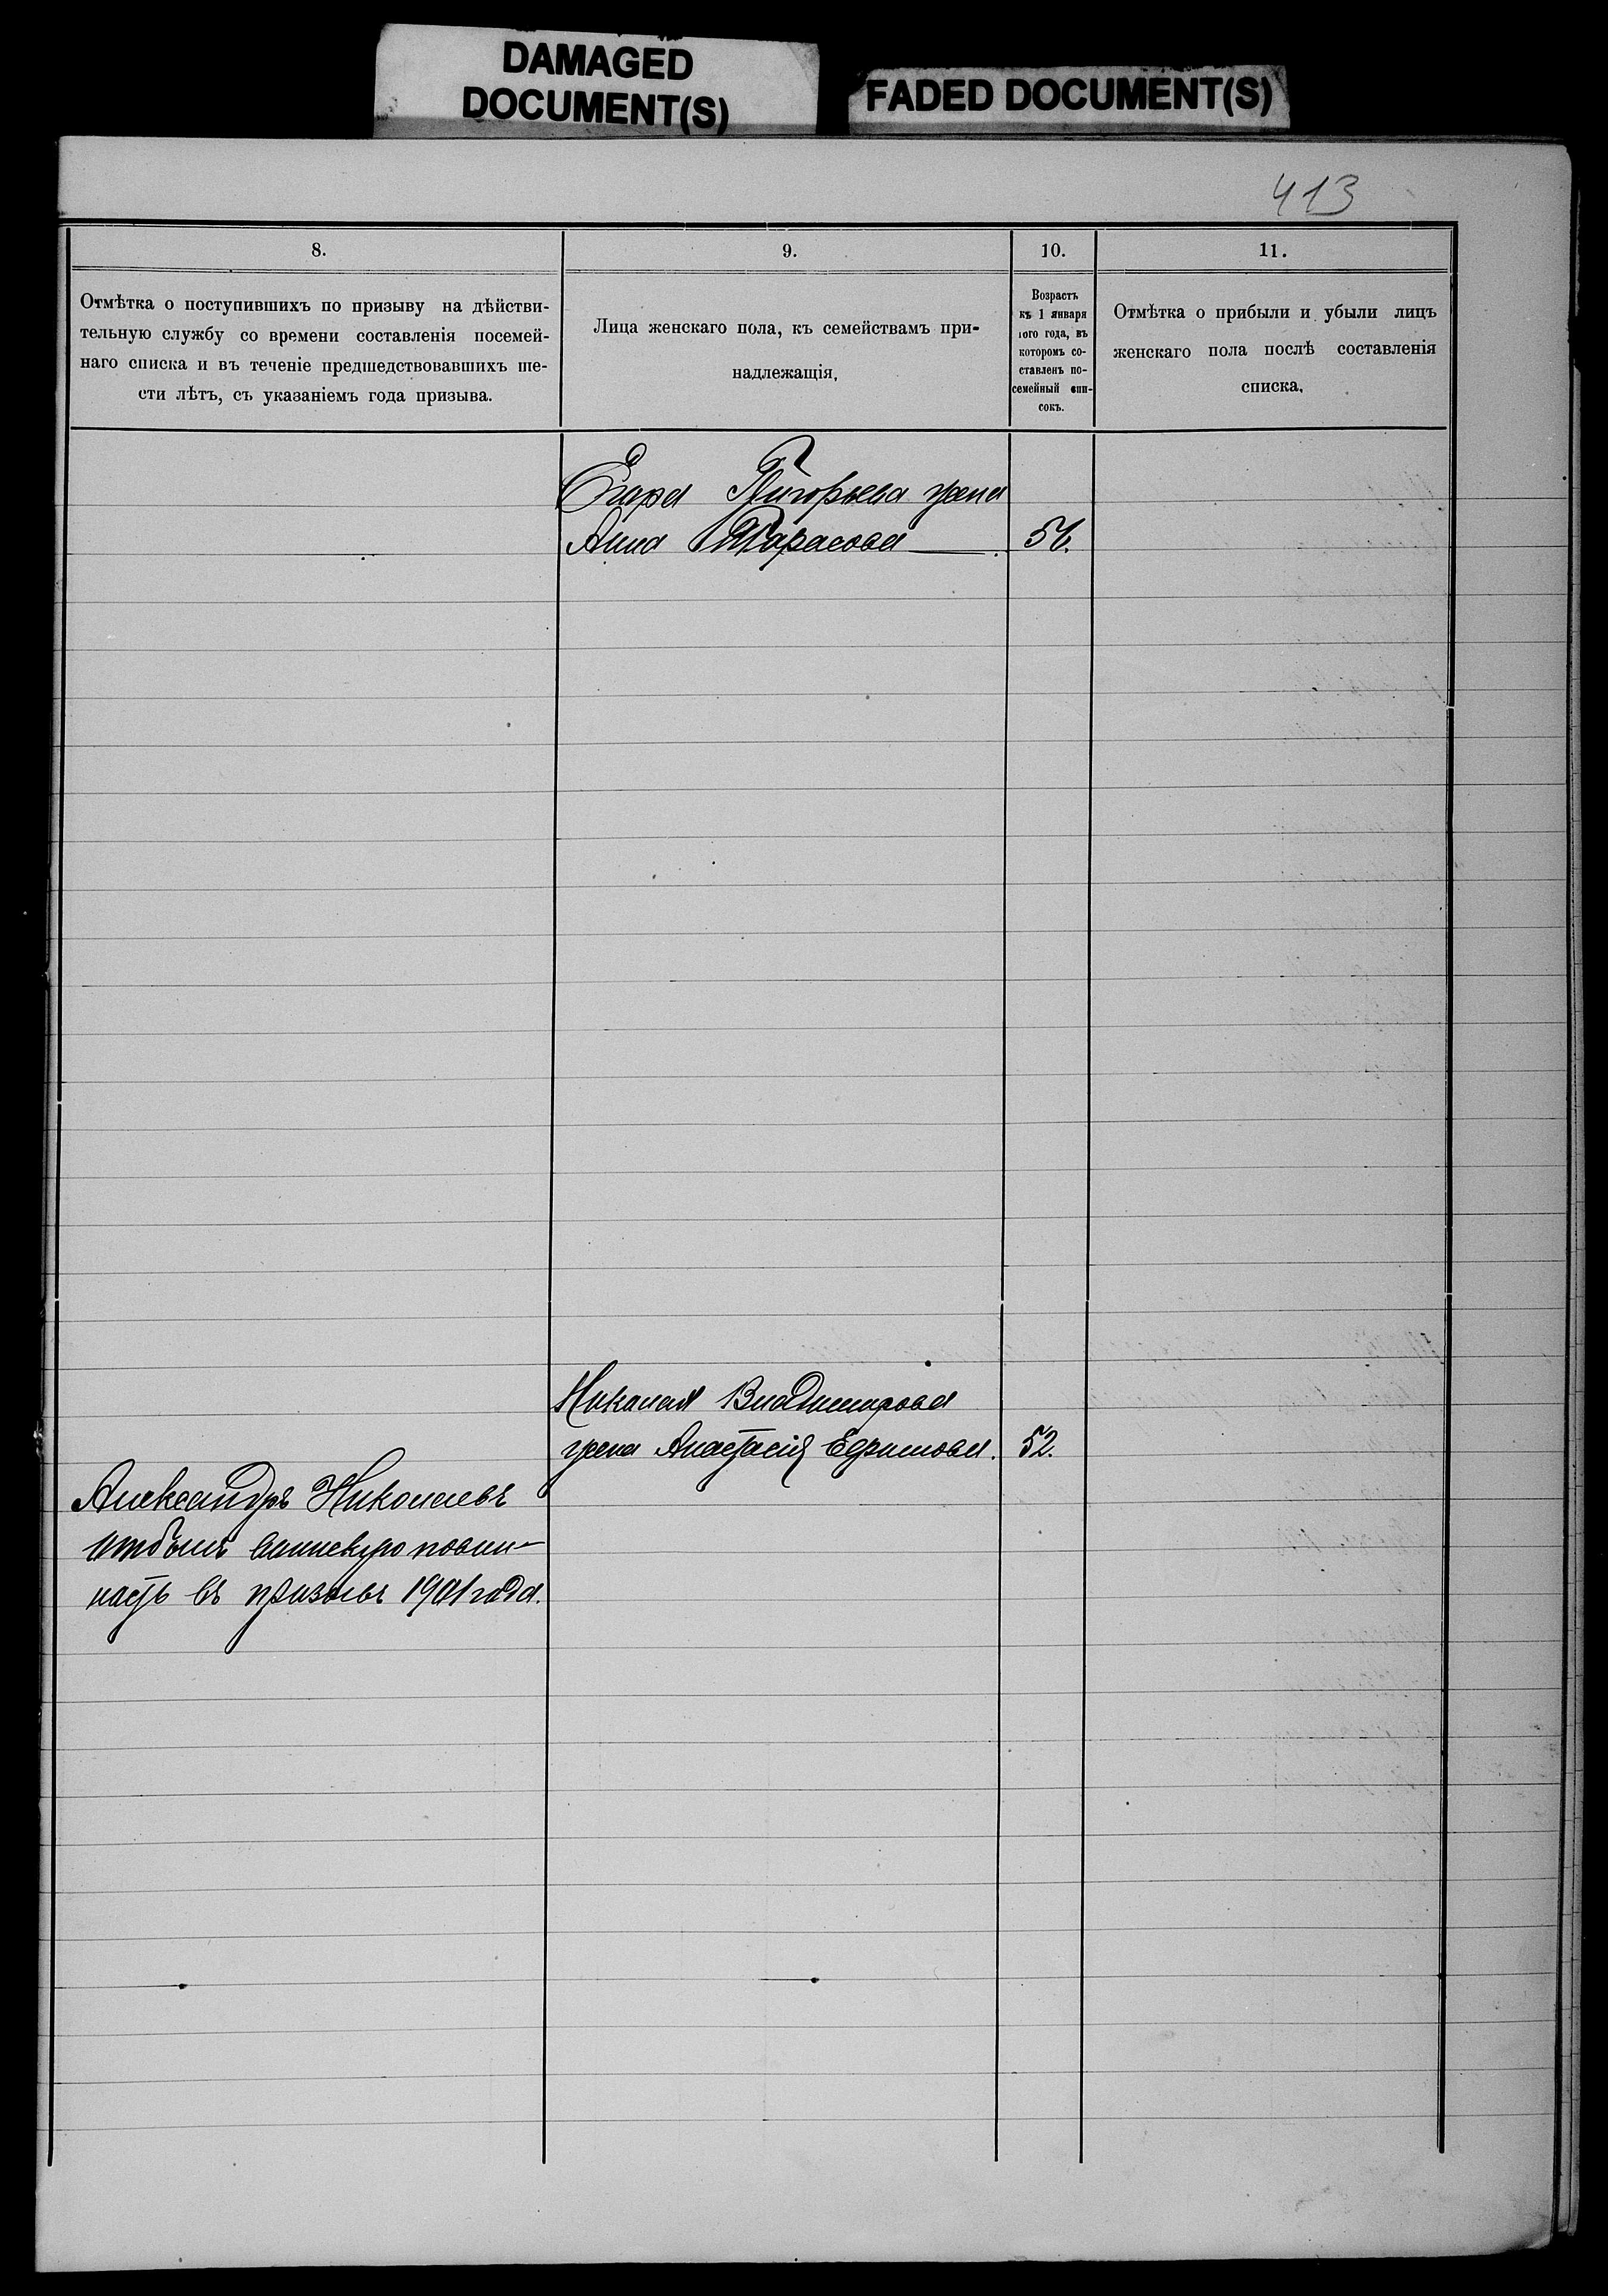 DAMAGED
DOCUMENT(S)
FADED DOCUMENT(S)
413
8.
9.
10.
11.
Отмѣтка о поступившихъ по призыву на дѣйстви-
тельную службу со времени составленія посемей-
наго списка и въ теченіе предшедствовавшихъ ше-
сти лѣтъ, съ указаніемъ года призыва.
Лица женскаго пола, къ семействамъ при-
надлежащія.
Возрастъ
къ 1 января
того года, въ
которомъ со-
ставленъ по-
семейный спи-
сокъ.
Отмѣтка о прибыли и убыли лицъ
женскаго пола послѣ составленія
списка.
Егора Григорьева жена
Анна Тарасова
Николая Владимирова
жена Анастасія Ефимова. 52.
Александръ Николаевъ
отбылъ воинскую повин-
ность въ призывъ 1901 года.